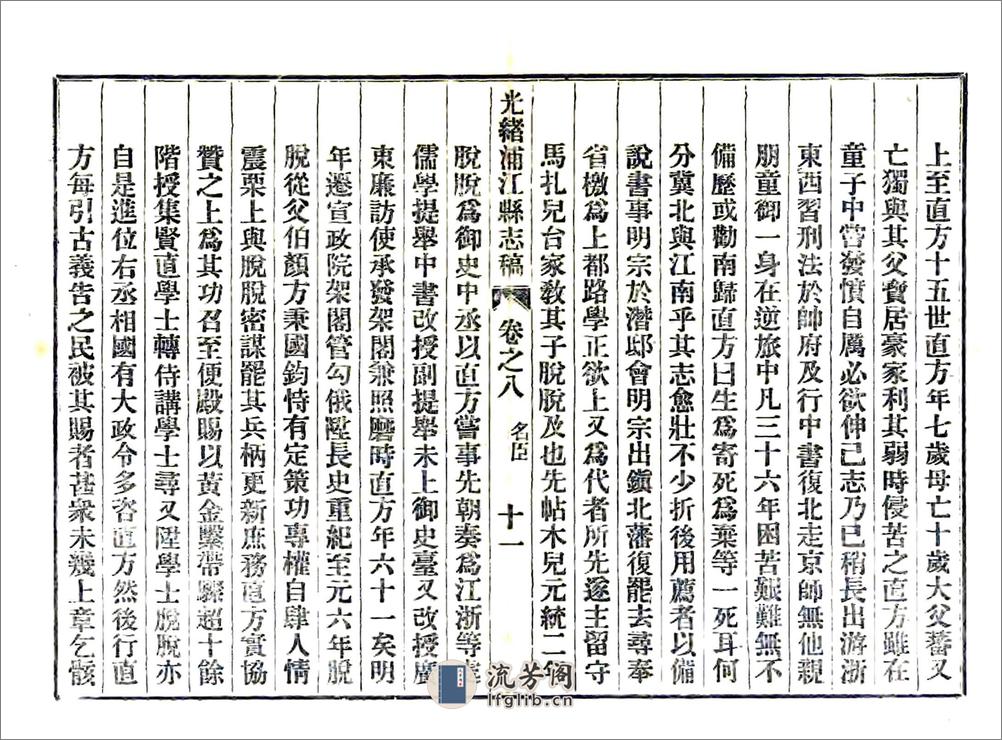 上至直方十五世直方年七歲母亡十歲大父蓍又
亡獨與其父賓居豪家利其弱時侵苦之直方雖在
童子中嘗發憤自厲必欲伸己志乃已稍長出游浙
東西習刑法於帥府及行中書復北走京師無他親
朋童御一身在逆旅中凡三十六年困苦艱難無不
備歷或勸南歸直方曰生爲寄死爲棄等一死耳何
分冀北與江南乎其志愈壯不少折後用薦者以備
說書事明宗於潛邸會明宗出鎮北藩復罷去尋奉
省檄爲上都路學正欲上又爲代者所先遂主留守
馬扎兒台家敎其子脫脫及也先帖木兒元統二年
光緒浦江縣志稿 卷之八 名臣 十一
脫脫爲御史中丞以直方嘗事先朝奏爲江浙等處
儒學提舉中書改授副提舉未上御史臺又改授廣
東廉訪使承發架閣兼照磨時直方年六十一矣明
年遷宣政院架閣管勾俄陞長史重紀至元六年脫
脫從父伯顏方秉國鈞恃有定策功專權自肆人情
震栗上與脫脫密謀罷其兵柄更新庶務直方實協
贊之上爲其功召至便殿賜以黃金繫帶驟超十餘
階授集賢直學士轉侍講學士尋又陞學士脫脫亦
自是進位右丞相國有大政令多咨直方然後行直
方每引古義告之民被其賜者甚衆未幾上章乞骸
流芳閣
lfglib.cn